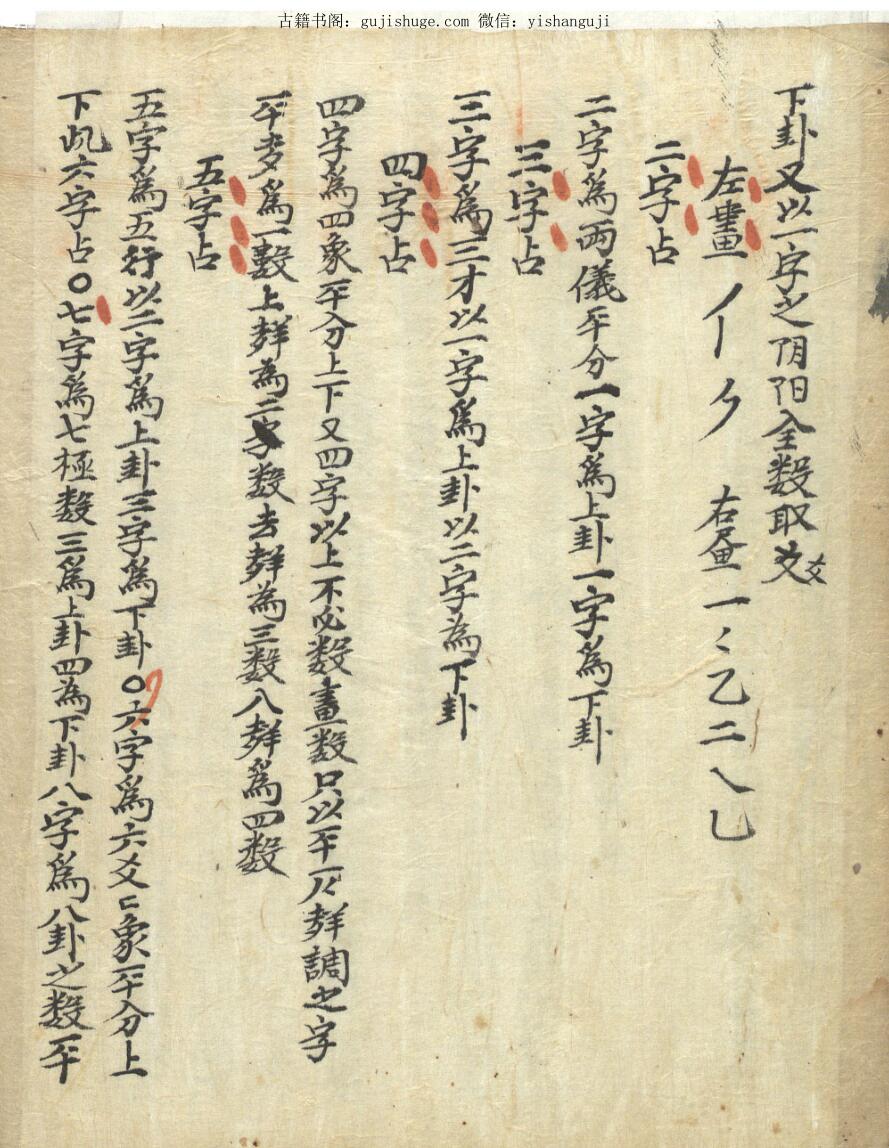 古籍书阁：gujishuge.com 微信：yishanguji
下卦又以一字之阴阳全数取爻爻
左畫丿丨𠂊 右𦘕一〻乙二乀乚
二字占
二字爲两儀平分一字爲上卦一字爲下卦
三字占
三字爲三才以一字爲上卦以二字為下卦
四字占
四字爲四象平分上下又四字以上不必数畫数只以平一八声調之字
平声爲一數上声為二字数去声為三数入声爲四数
五字占
五字爲五行以二字爲上卦三字爲下卦○六字爲六爻之象平分上
下此六字占○七字爲七極数三爲上卦四為下卦八字爲八卦之数平